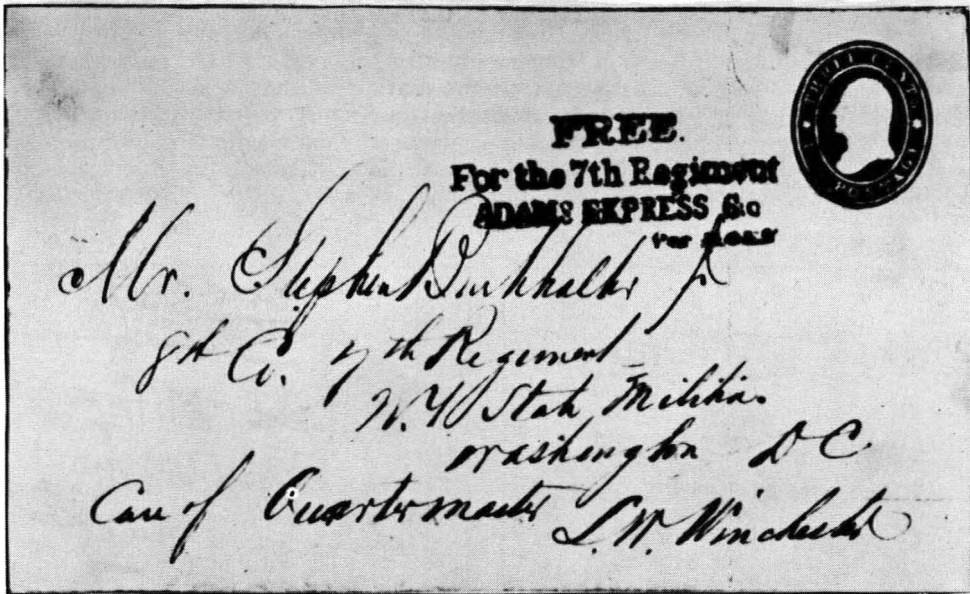 THREE CENTS
POSTAGE
FREE.
For the 7th Regiment
ADAMS EXPRESS Co
Per
Mr. Stephen Burkhalter Jr
8th Co. 7th Regiment
N.Y. State Militia.
Washington D C
Care of Quartermaster L.W. Winchester